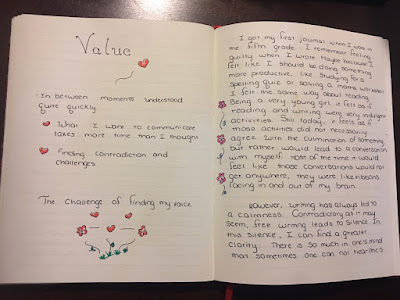 Value
· In between moments understood
quite quickly
What I want to communicate
takes more time than I thought
Finding contradiction and
challenges
The challenge of finding my voice
I got my first journal when I was in
the fifth grade. I remember feeling
guilty when I wrote maybe because I
felt like I should be doing something
more productive, like studying for a
spelling quiz or solving a math worksheet.
I felt the same way about reading.
Being a very young girl, it felt as if
reading and writing were very indulgent
activities. Still today, it feels as if
those activities did not necessarily
agree with the culmination of something
but rather would lead to a conversation
with myself. Most of the time it would
feel like those conversations would not
get anywhere, they were like ribbons
facing in and out of my brain.
However, writing has always led to
a calmness. Contradictory as it may
seem, free writing leads to silence. In
this silence, I can find a greater
clarity. There is so much in one's mind
that sometimes one can not hear one's